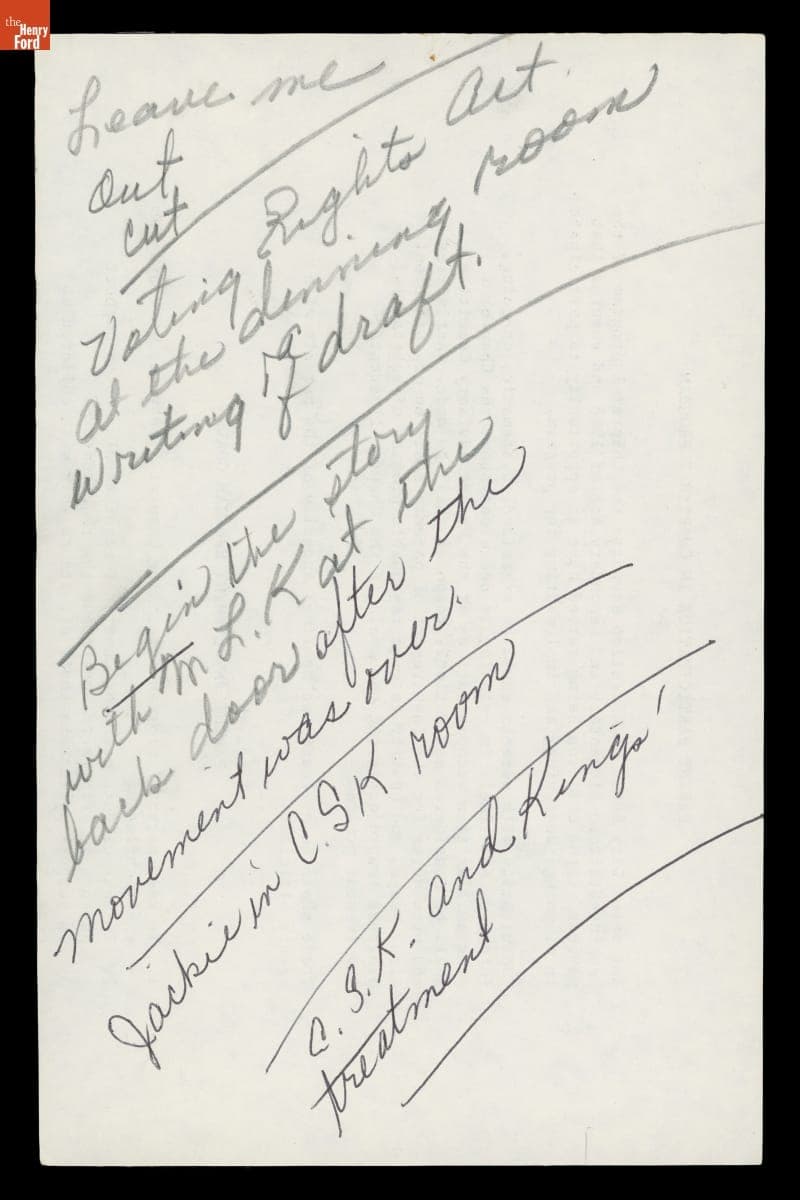 the
Henry
Ford
Leave me
Out
cut
Voting Rights Act.
at the dinning room
writing "a draft.
Begin the story
with M L. K at the
back door after the
movement was over.
Jackie in C.S.K room
C.S.K. and Kings'
treatment